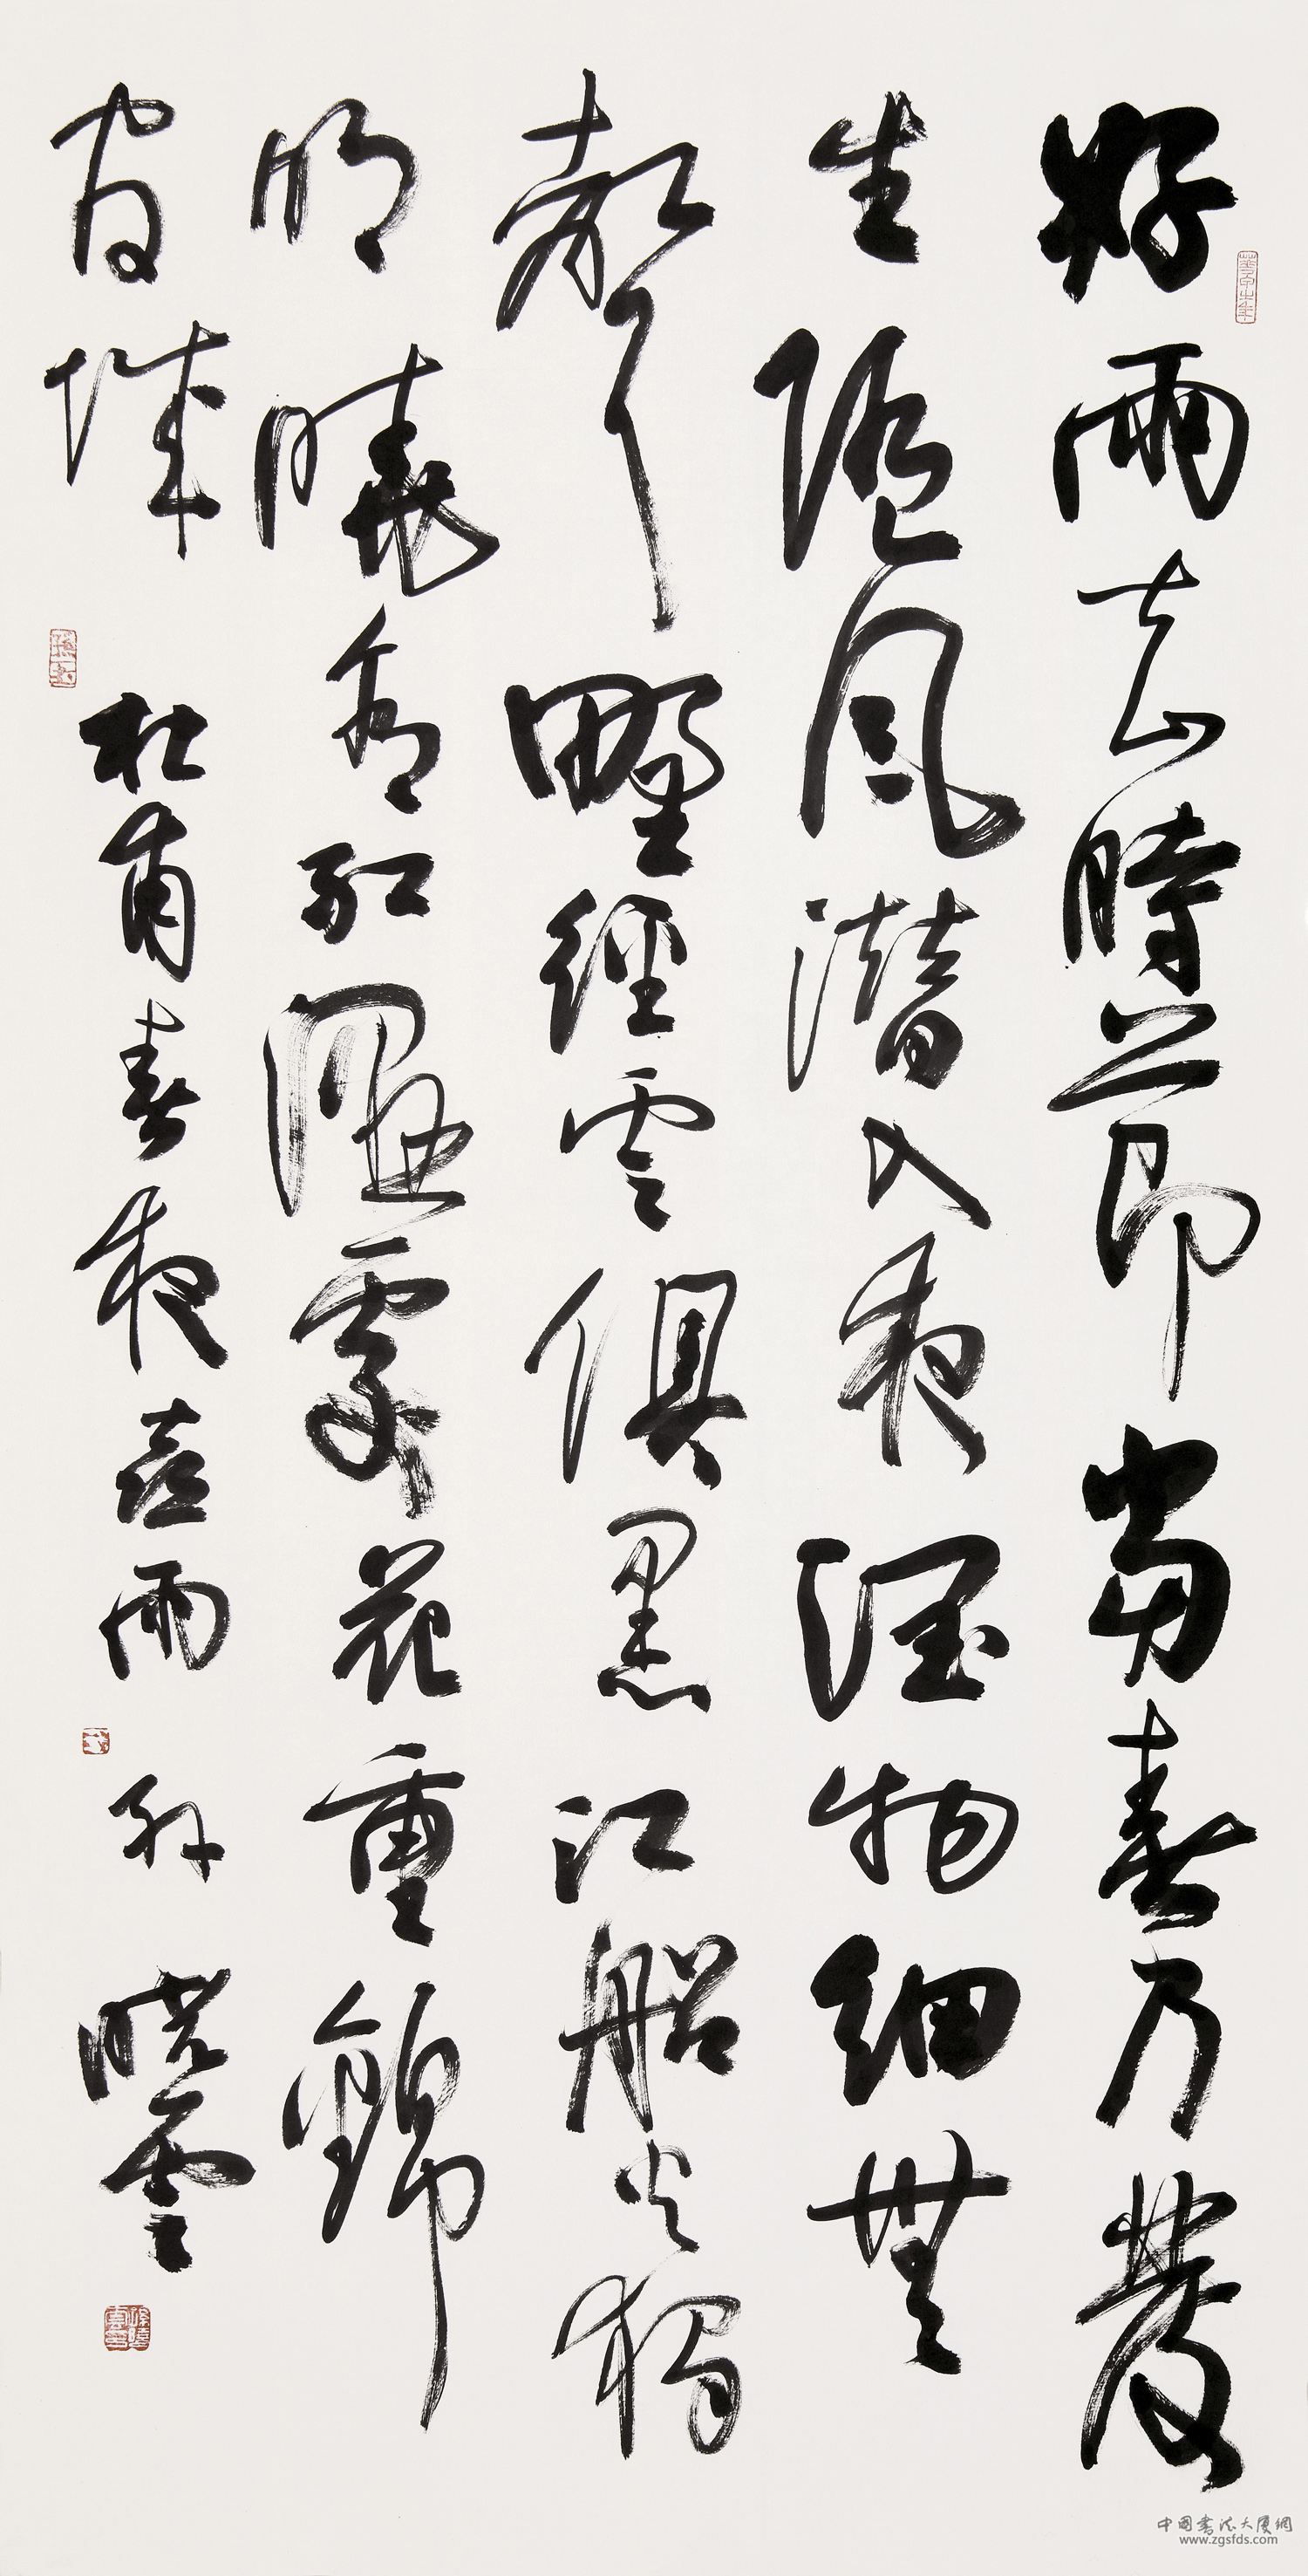 好雨知時節當春乃發
生随風潜入夜潤物細無
聲野徑雲俱黑江船火獨
明曉看紅濕處花重錦
官城 杜甫春夜喜雨 孫曉雲
中国書法大厦網
www.zgsfds.com